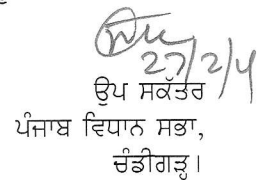 27/2/4
ਉਪ ਸਕੱਤਰ
ਪੰਜਾਬ ਵਿਧਾਨ ਸਭਾ,
ਚੰਡੀਗੜ੍ਹ।